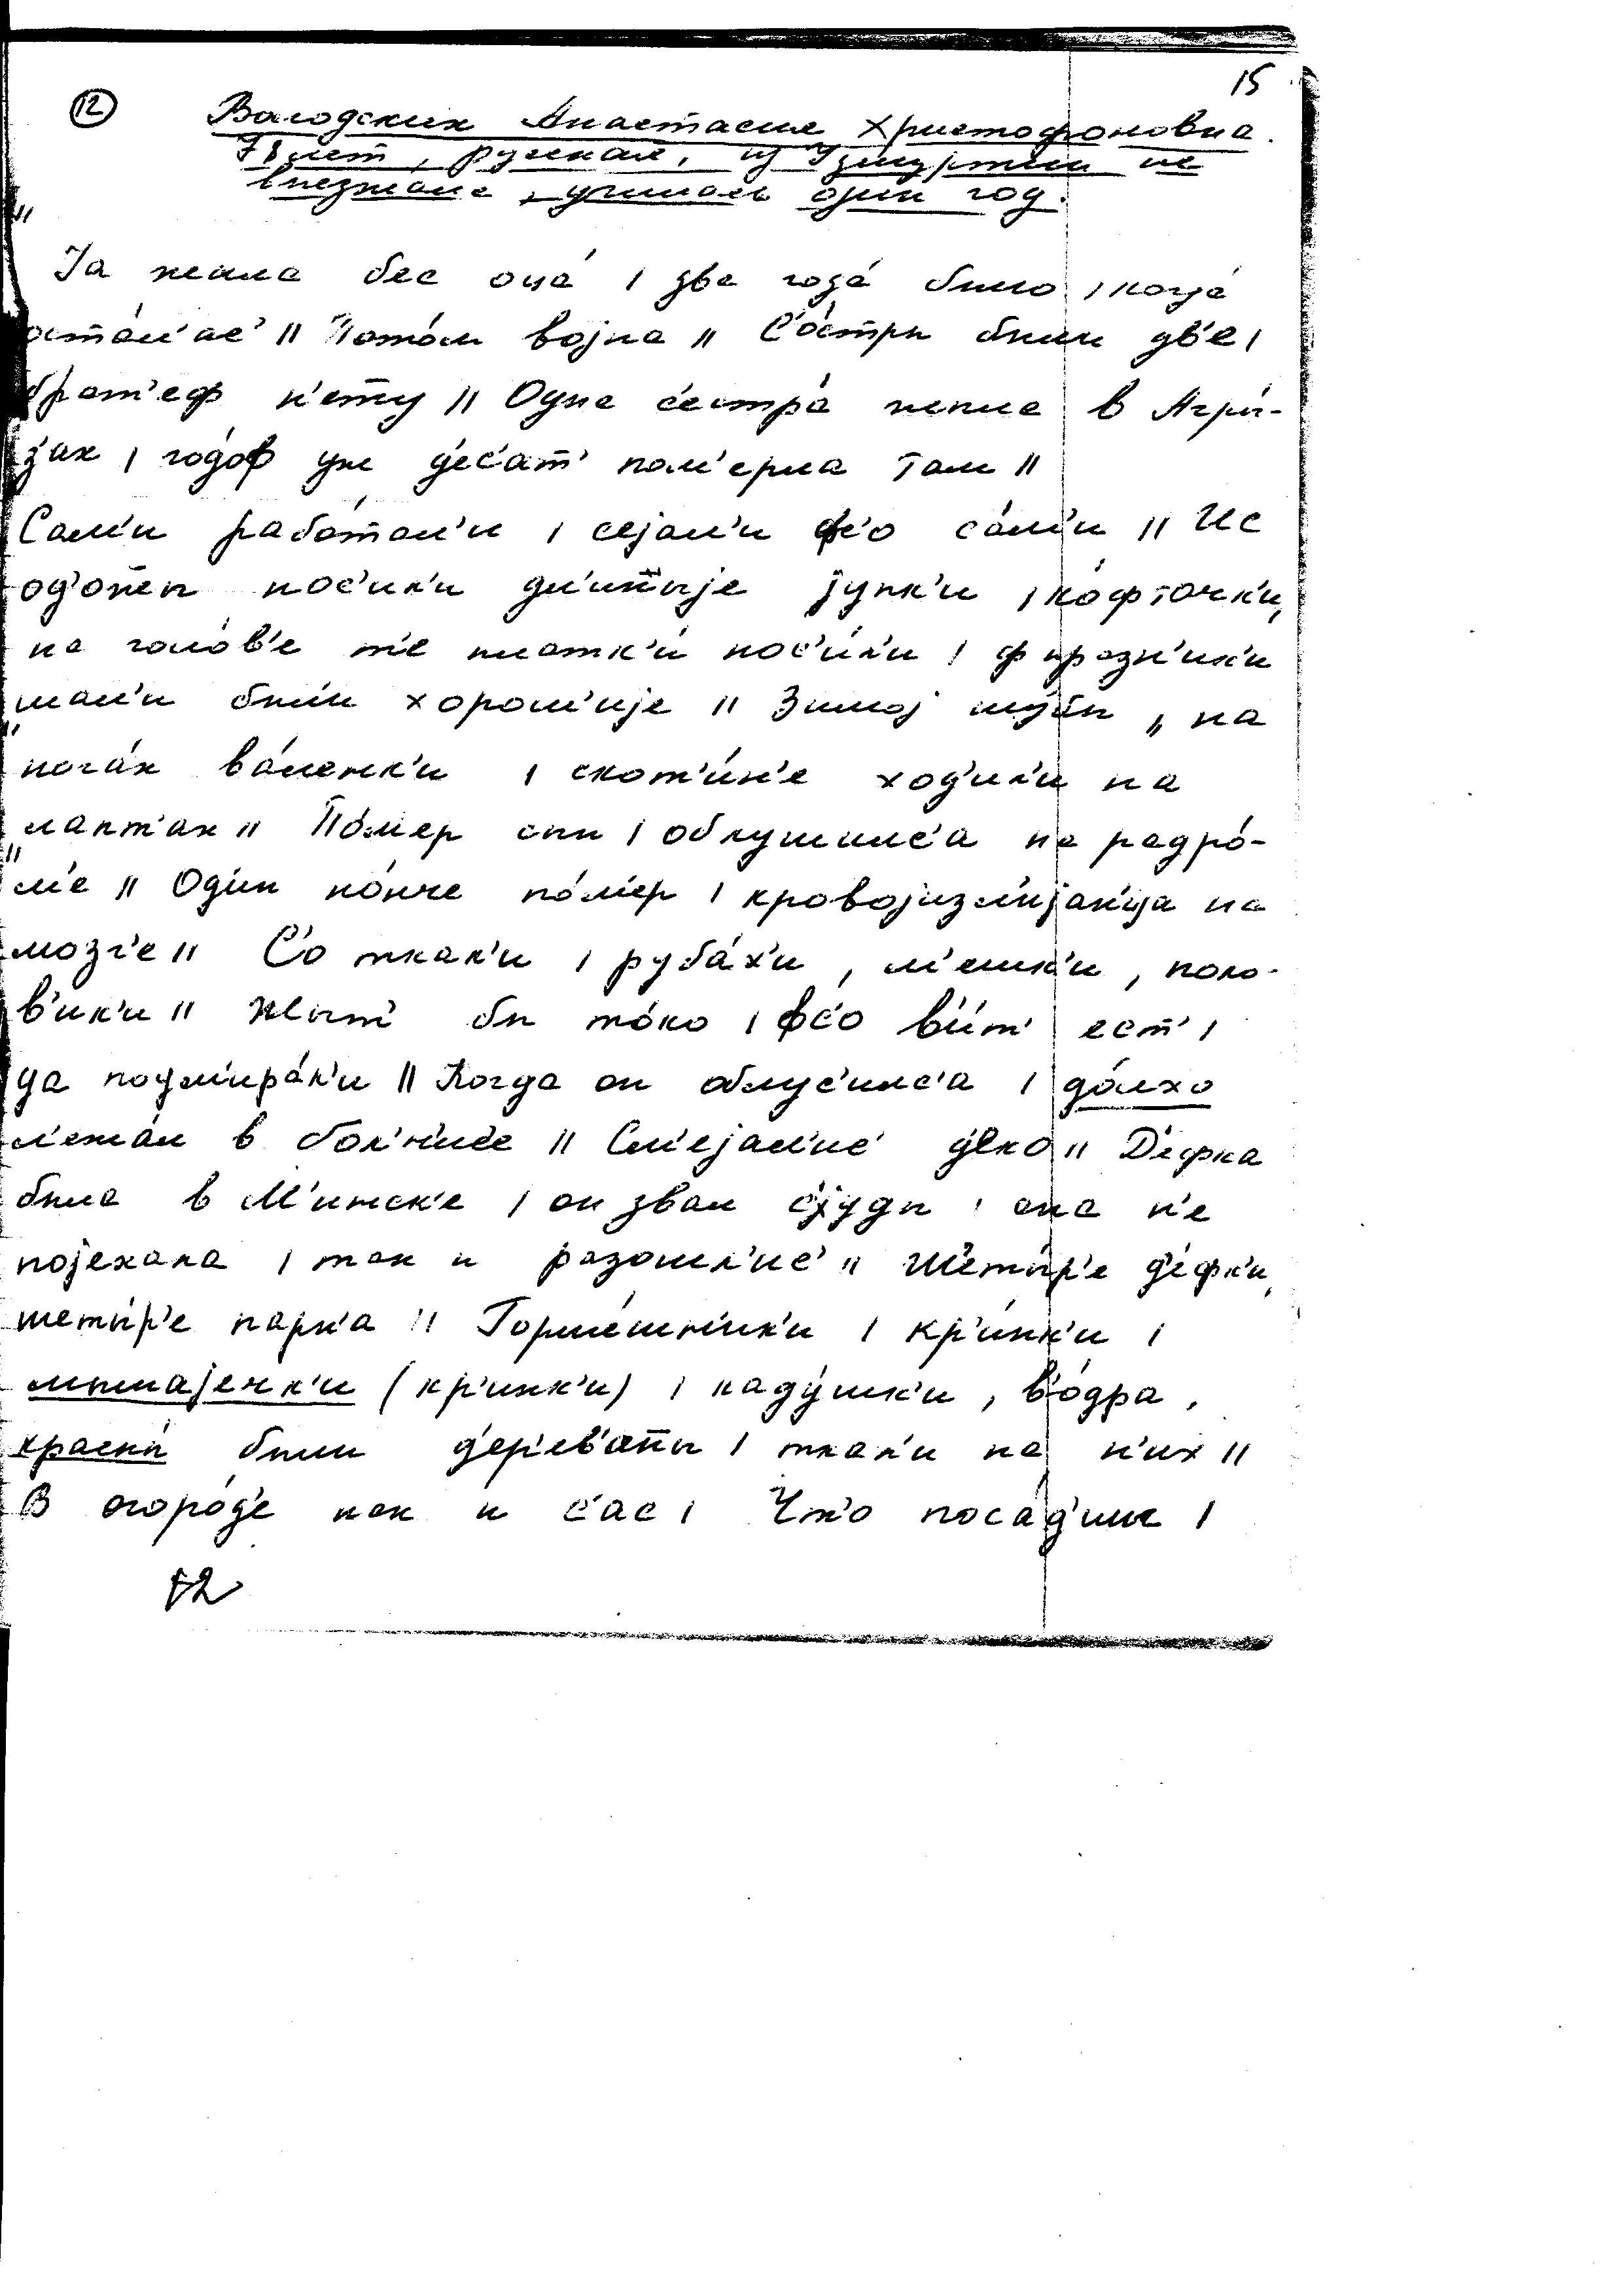 15
12 Вагодских Анастасия Христофоновна.
78 лет, русская, из Удмуртии не
выезжала, училась один год.
Jа жыла бес оца́ | два года́ было | когда́
оста́л'ас' || Пото́м војна || С'о́стры были дв'е |
брат'еф н'ету || Одна сестра́ жыла в Агры́-
зах | годо́ф уж д'ес'ат' пом'ерла там ||
Сам'и рабо́тал'и | сејал'и фс'о са́м'и || Ис
од'о́жы нос'ил'и дл'и́нныје јупк'и | ко́фточк'и,
на голов'е́ т'е платк'и́ нос'и́л'и | ф празн'ик'и
шал'и были хорош'ије || Зимој шу́бы || на
нога́х ва́ленк'и | скот'и́н'е ход'ил'и на
лапт'ах || По́мер сын | облушылс'а на радро́-
м'е || Од'ин но́нче по́м'ер | кровојизл'ијан'ија на
мозг'е || С'о ткал'и | руба́х'и, м'ешк'и, поло-
в'ик'и || Жыт' бы то́ко | фс'о в'ит' ест' |
да поум'ира́л'и || Когда он облус'илс'а | до́лхо
л'ежа́л в бол'н'иц'е || См'ејал'ис' д'ело || Д'ефка
была в М'инск'е | он звал с'уды | она н'е
појехала | так и разошл'ис' || Шеты́р'е д'е́фк'и,
шеты́р'е парн'а || Горше́шн'ик'и | кр'и́нк'и |
мышајечк'и (кр'инк'и) | каду́шк'и, в'о́дра,
красны́ были д'ер'ев'а́ны | ткал'и на н'их ||
В огоро́д'е как и с'ас | Что поса́д'иш |
12